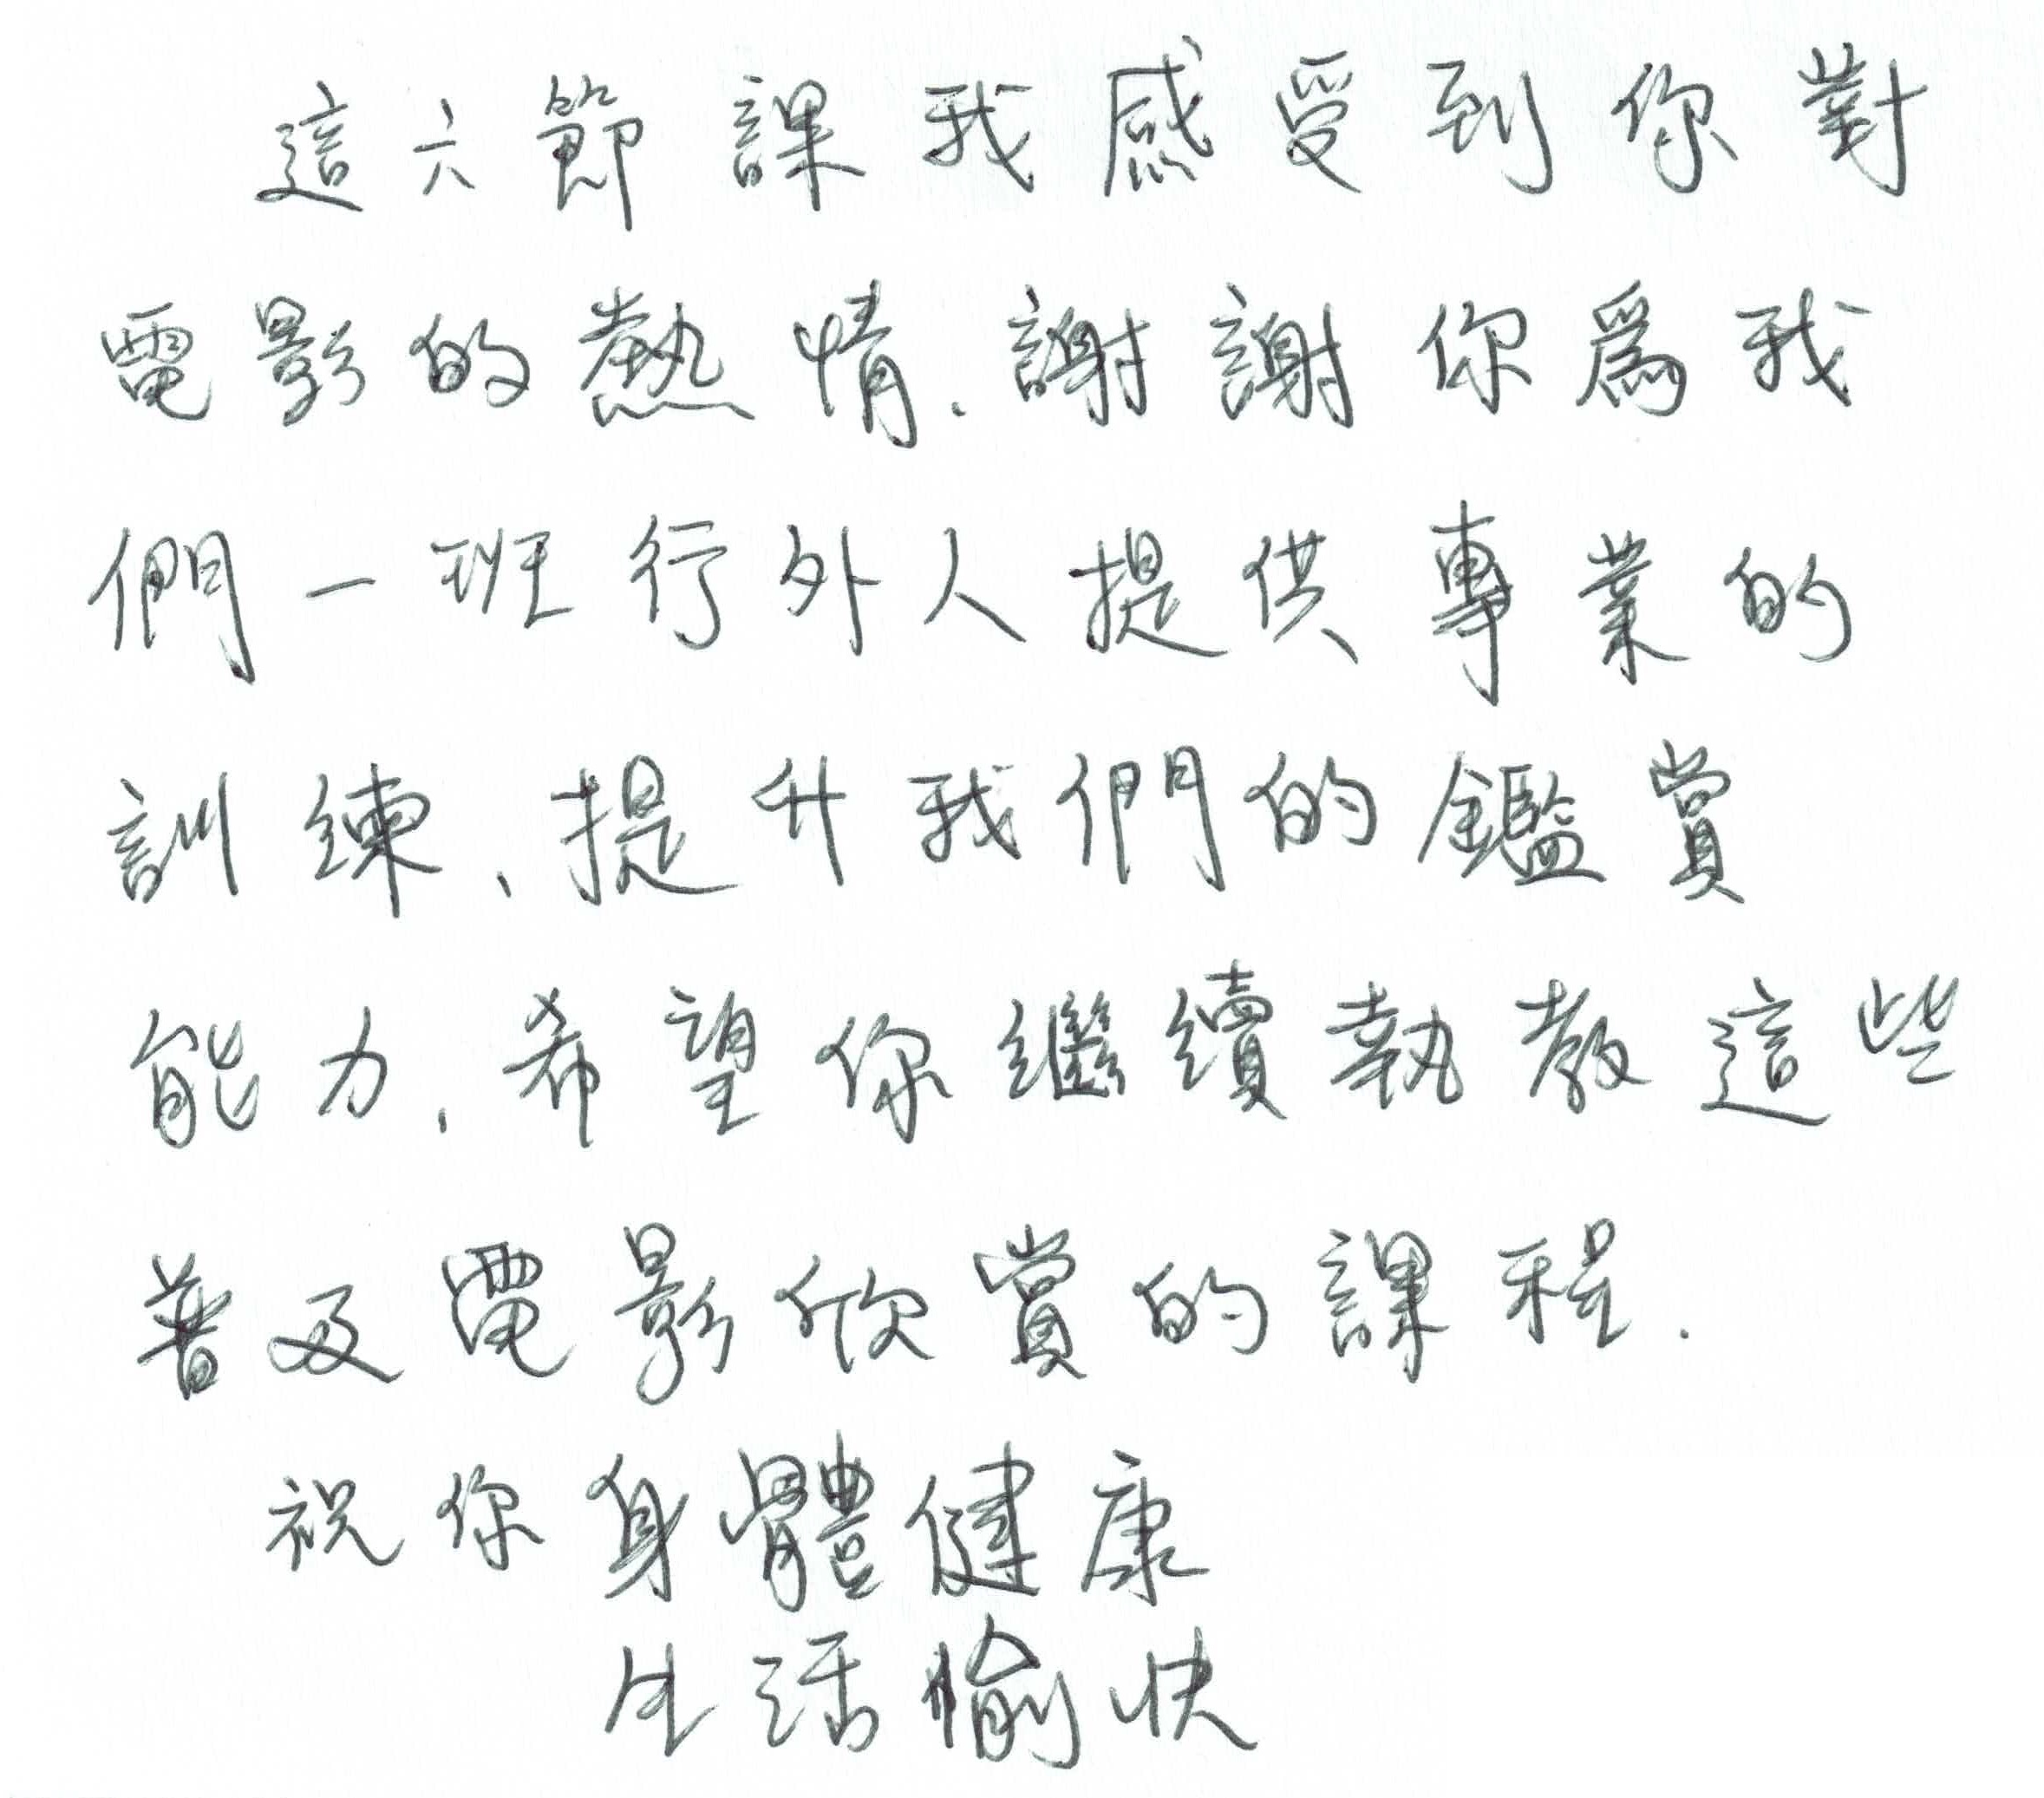 這六節課我感受到你對
電影的熱情.謝謝你爲我
們一班行外人提供專業的
訓練、提升我們的鑑賞
能力,希望你繼續執教這些
普及電影欣賞的課程.
祝你身體健康
生活愉快